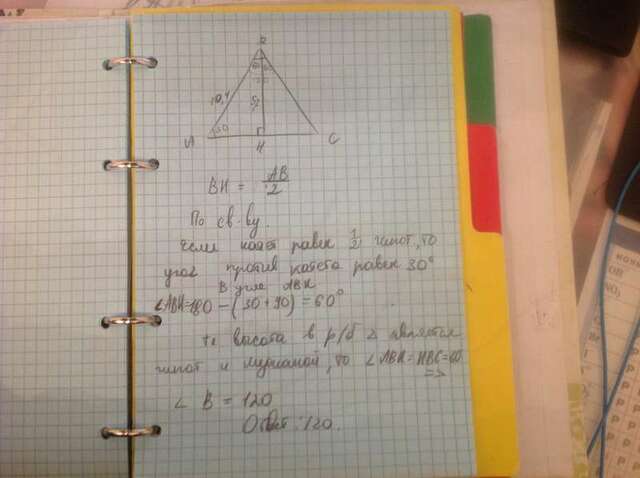 B
10,4
5,2
30
A
H
C
BH = AB/2
По св-ву.
Если катет равен 1/2 гипот., то
угол против катета равен 30°
В угле ABH
∠ABH=180-(30+90)=60°
тк высота в р/б △ является
и , то ∠ABH=HBC=60
=>
∠ B = 120
Ответ: 120.